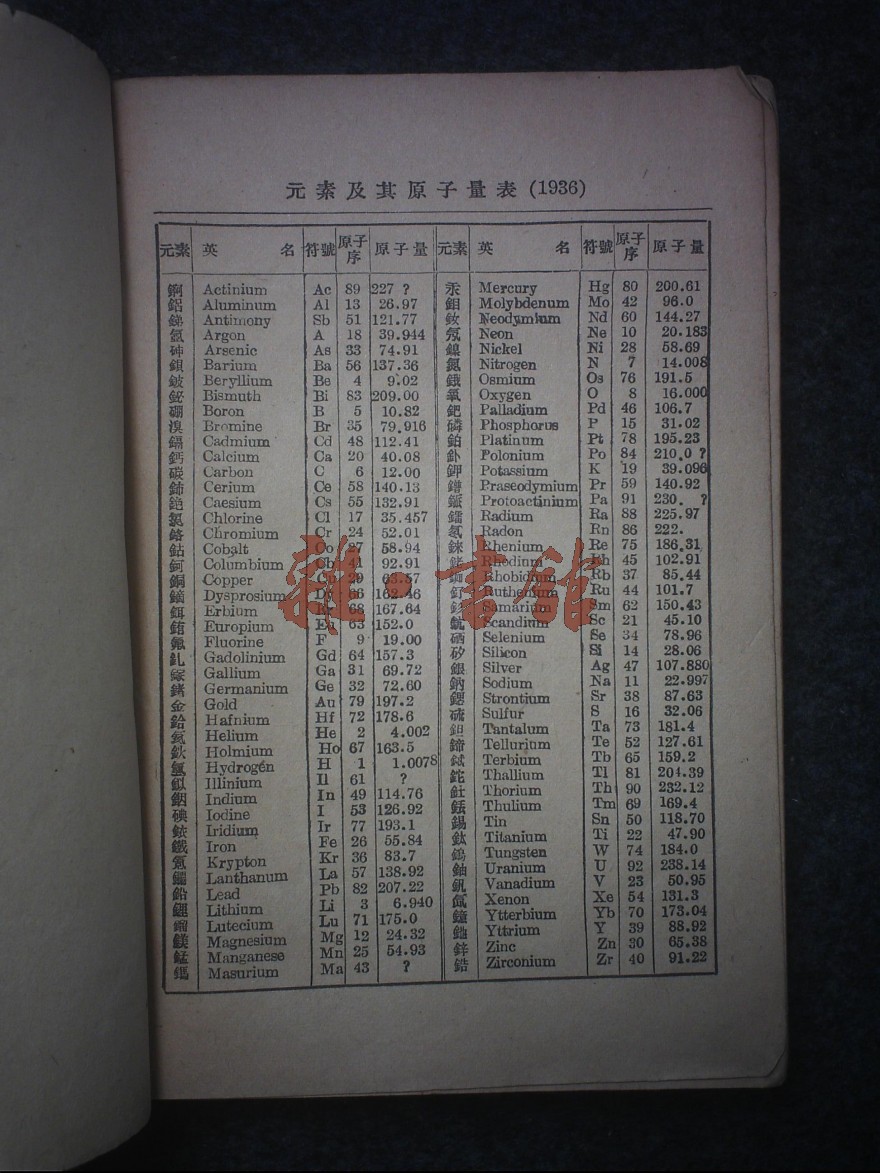 元素及其原子量表 (1936)
元素 英 名 符號 原子序 原子量 元素 英 名 符號 原子序 原子量
錒 Actinium Ac 89 227 ? 汞 Mercury Hg 80 200.61
鋁 Aluminum Al 13 26.97 鉬 Molybdenum Mo 42 96.0
銻 Antimony Sb 51 121.77 釹 Neodymium Nd 60 144.27
氬 Argon A 18 39.944 氖 Neon Ne 10 20.183
砷 Arsenic As 33 74.91 鎳 Nickel Ni 28 58.69
鋇 Barium Ba 56 137.36 氮 Nitrogen N 7 14.008
鈹 Beryllium Be 4 9.02 鋨 Osmium Os 76 191.5
鉍 Bismuth Bi 83 209.00 氧 Oxygen O 8 16.000
硼 Boron B 5 10.82 鈀 Palladium Pd 46 106.7
溴 Bromine Br 35 79.916 磷 Phosphorus P 15 31.02
鎘 Cadmium Cd 48 112.41 鉑 Platinum Pt 78 195.23
鈣 Calcium Ca 20 40.08 釙 Polonium Po 84 210.0 ?
碳 Carbon C 6 12.00 鉀 Potassium K 19 39.096
鈰 Cerium Ce 58 140.13 鐠 Praseodymium Pr 59 140.92
銫 Caesium Cs 55 132.91 Protoactinium Pa 91 230. ?
氯 Chlorine Cl 17 35.457 鐳 Radium Ra 88 225.97
鉻 Chromium Cr 24 52.01 氡 Radon Rn 86 222.
鈷 Cobalt Co 27 58.94 錸 Rhenium Re 75 186.31
鈳 Columbium Cb 41 92.91 銠 Rhodium Rh 45 102.91
銅 Copper Cu 29 63.57 銣 Rhobidium Rb 37 85.44
鏑 Dysprosium Dy 66 162.46 釕 Ruthenium Ru 44 101.7
鉺 Erbium Er 68 167.64 釤 Samarium Sm 62 150.43
銪 Europium Eu 63 152.0 Scandium Sc 21 45.10
氟 Fluorine F 9 19.00 硒 Selenium Se 34 78.96
釓 Gadolinium Gd 64 157.3 矽 Silicon Si 14 28.06
鎵 Gallium Ga 31 69.72 銀 Silver Ag 47 107.880
鍺 Germanium Ge 32 72.60 鈉 Sodium Na 11 22.997
金 Gold Au 79 197.2 鍶 Strontium Sr 38 87.63
鉿 Hafnium Hf 72 178.6 硫 Sulfur S 16 32.06
氦 Helium He 2 4.002 鉭 Tantalum Ta 73 181.4
鈥 Holmium Ho 67 163.5 碲 Tellurium Te 52 127.61
氫 Hydrogén H 1 1.0078 Terbium Tb 65 159.2
Illinium Il 61 ? 鉈 Thallium Tl 81 204.39
銦 Indium In 49 114.76 釷 Thorium Th 90 232.12
碘 Iodine I 53 126.92 銩 Thulium Tm 69 169.4
銥 Iridium Ir 77 193.1 錫 Tin Sn 50 118.70
鐵 Iron Fe 26 55.84 鈦 Titanium Ti 22 47.90
氪 Krypton Kr 36 83.7 鎢 Tungsten W 74 184.0
鑭 Lanthanum La 57 138.92 鈾 Uranium U 92 238.14
鉛 Lead Pb 82 207.22 釩 Vanadium V 23 50.95
鋰 Lithium Li 3 6.940 氙 Xenon Xe 54 131.3
鎦 Lutecium Lu 71 175.0 鐿 Ytterbium Yb 70 173.04
鎂 Magnesium Mg 12 24.32 Yttrium Y 39 88.92
錳 Manganese Mn 25 54.93 鋅 Zinc Zn 30 65.38
鎷 Masurium Ma 43 ? 鋯 Zirconium Zr 40 91.22
雜·書館